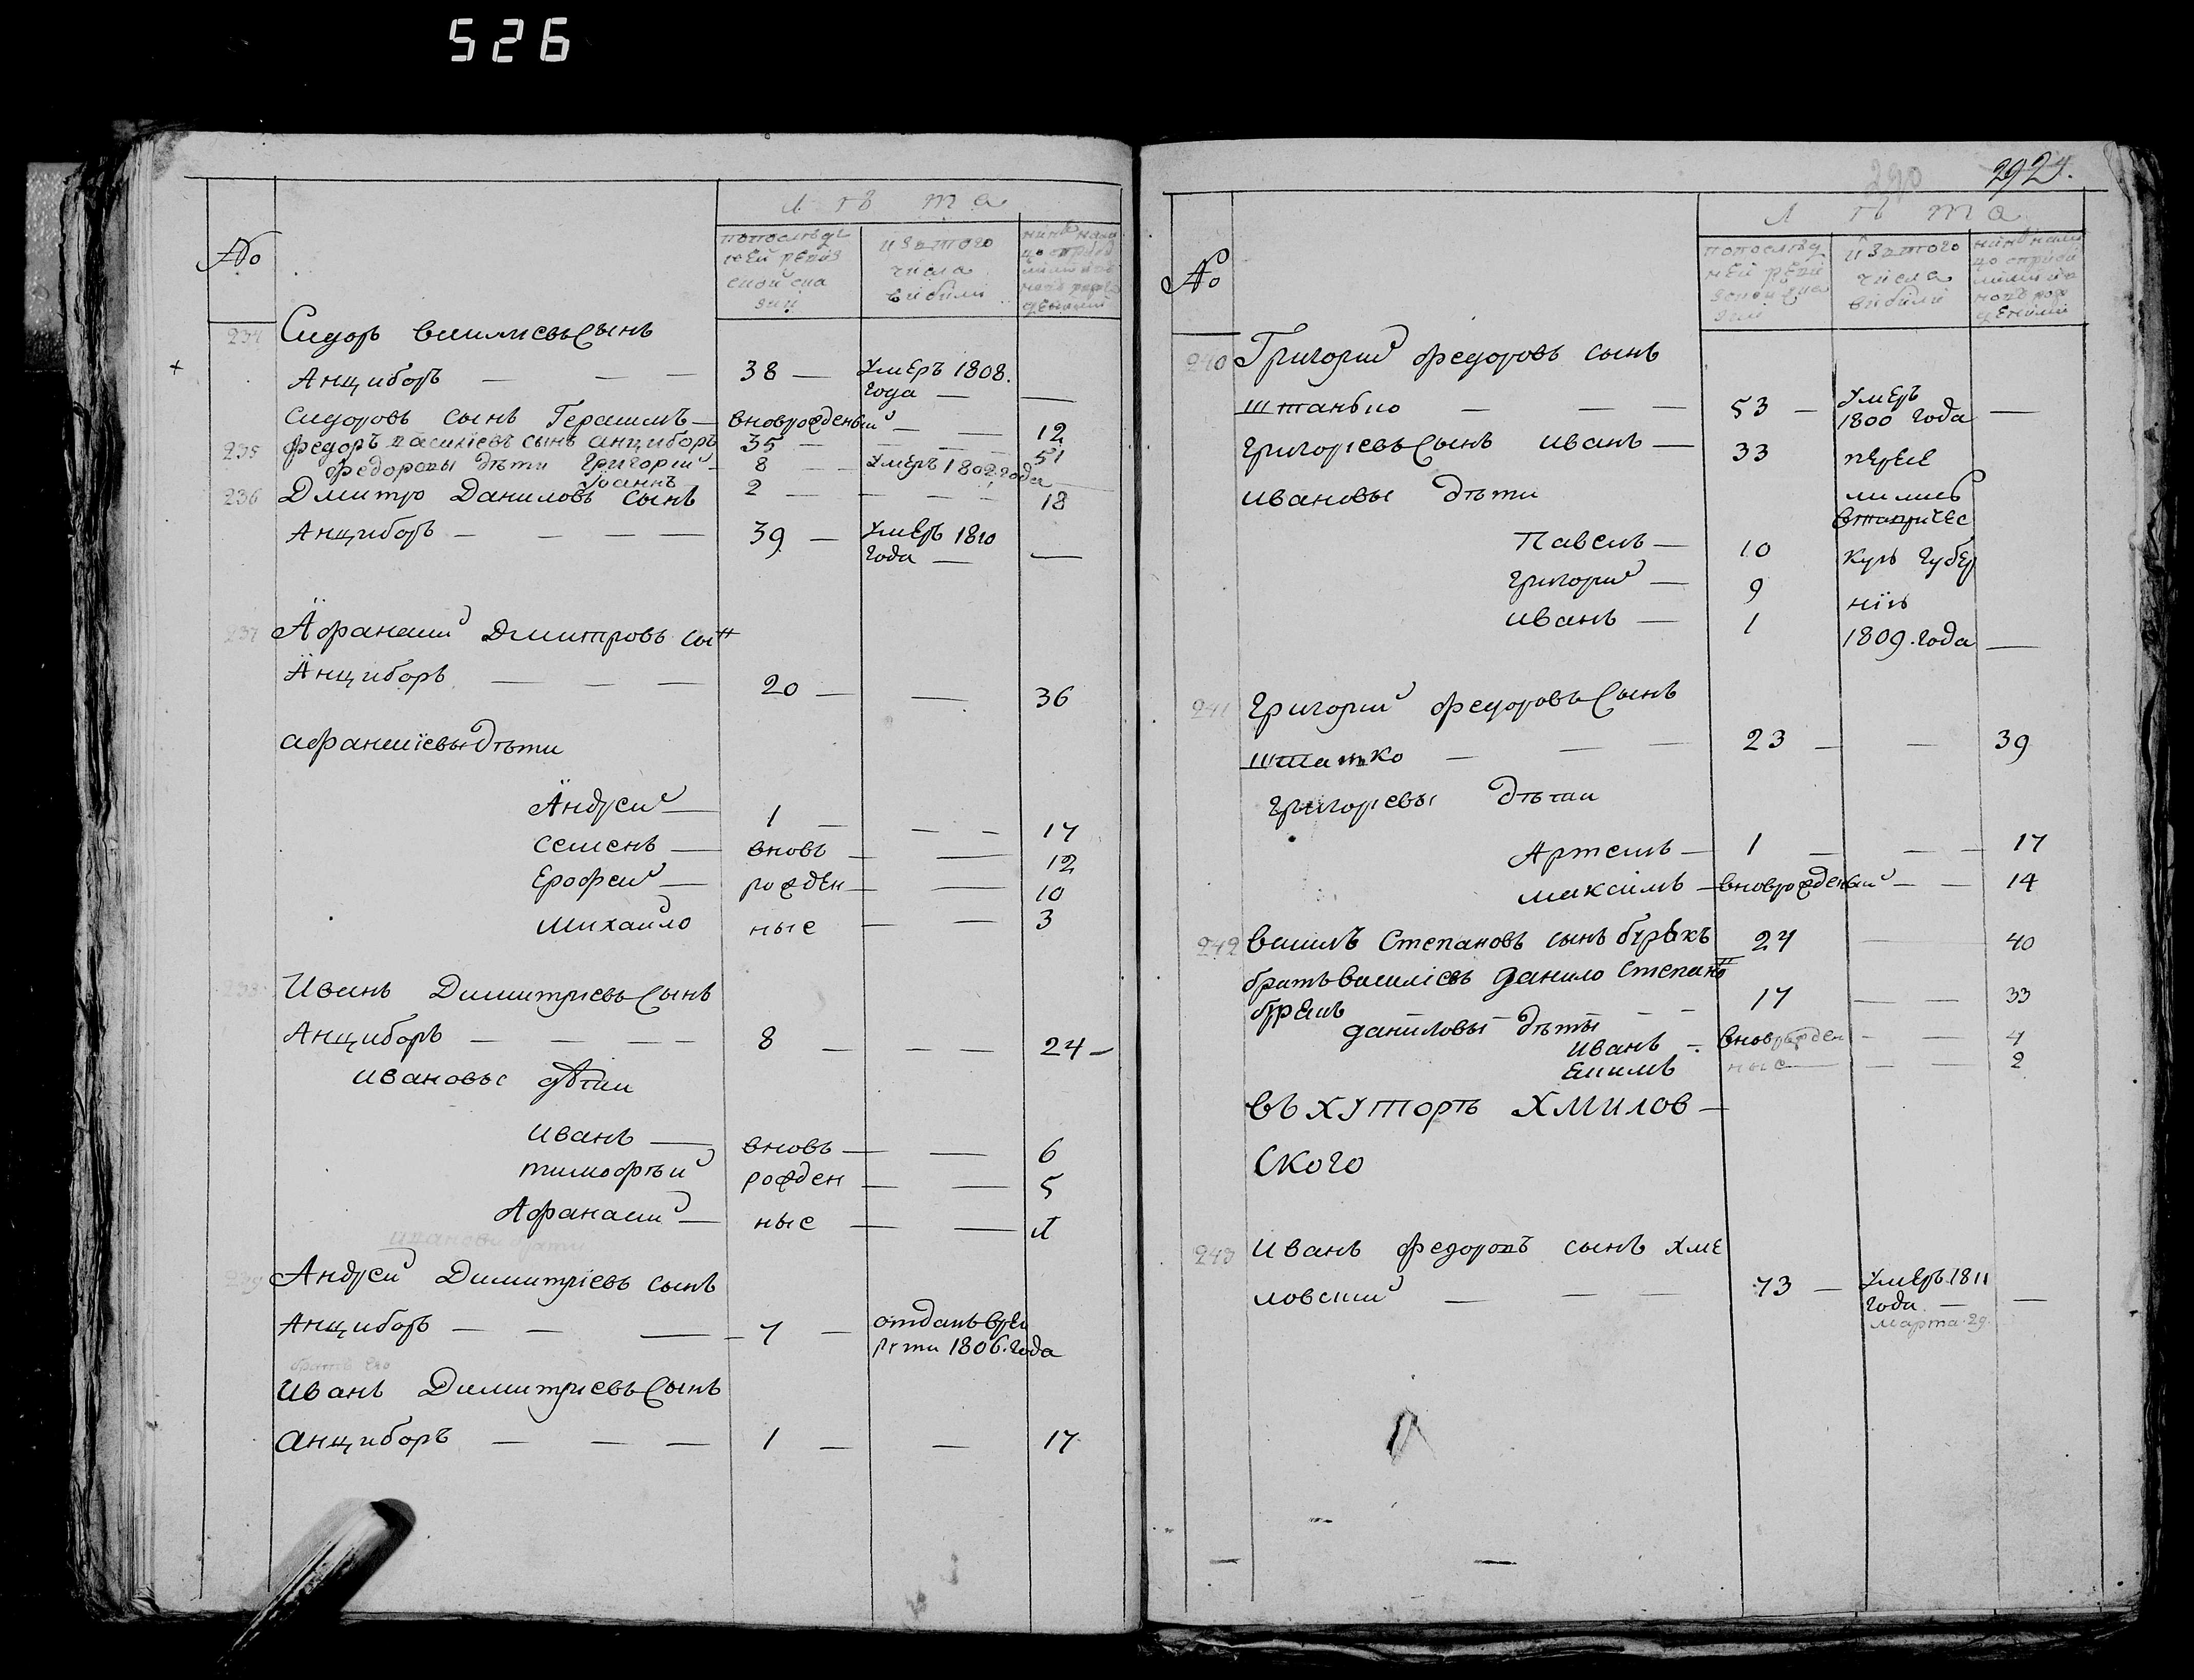 526
Лѣта
№
попослѣд
ней ревиз
ской ска
зки
изътого
числа
выбыли
234 Сидоръ василиевъ Сынъ
Анциборъ — — — 38 — Умеръ 1808.
года — —
Сидоровъ сынъ Герасимъ — вноврожденный — — 12
235 Федоръ василіевъ сынъ анциборъ 35 — — — 51
Федоровы дѣти Григорий — 8 — Умеръ 1802 года —
Іоаннъ 2 — — — 18
236 Дмитро Даниловъ сынъ
Анциборъ — — — — 39 — Умеръ 1810
года — —
237 Афанасий Дмитровъ сын
Анциборъ — — — 20 — — 36
афанасіевы дѣти
Андрей — 1 — — — 17
семенъ — вновь — — 12
Ерофей — рожден — — 10
Михайло ные — — 3
238 Иванъ Димитриевъ Сынъ
Анциборъ — — — — 8 — — — 24 —
ивановы дѣти
иванъ — вновь — — 6
тимофѣй рожден — — 5
Афанасий — ные — —
239 Андрей Димитріевъ сынъ
Анциборъ — — — 7 — отданъ врек
руты 1806. года
братъ его
Иванъ Димитриевъ Сынъ
анциборъ — — — 1 — — 17
290 292
Лѣта
№
попослѣд
ней реви
зской ска
зки
изътого
числа
выбыли
240 Григорий федоровъ сынъ
штанько — — — 53 — Умеръ
1800 года —
григориевъ Сынъ иванъ — 33 пересе
ивановы дѣти лились
втавричес
Павелъ — 10 кую губер
григорий — 9 нію
иванъ — 1 1809. года —
241 григорий федоровъ Сынъ
штанко — — — 23 — — 39
григориевы дѣти
Артемъ — 1 — — — 17
максимъ — вноврожденный — — 14
242 василъ Степановъ сынъ 27 — 40
братъ василіевъ данило степанов
17 — — 33
даниловы дѣты
иванъ — вноврожден — — 4
ные — — — 2
въ хуторѣ Хмилов —
ского
243 иванъ федоровъ сынъ хме
ловский — — — 73 — Умеръ 1811
года — —
марта 29